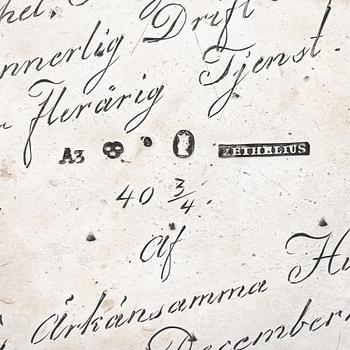 Drift
nnerlig
flerårig Tjenst.
A3 ZETHELIUS
40 3/4.
Af
Ärkänsamma
December